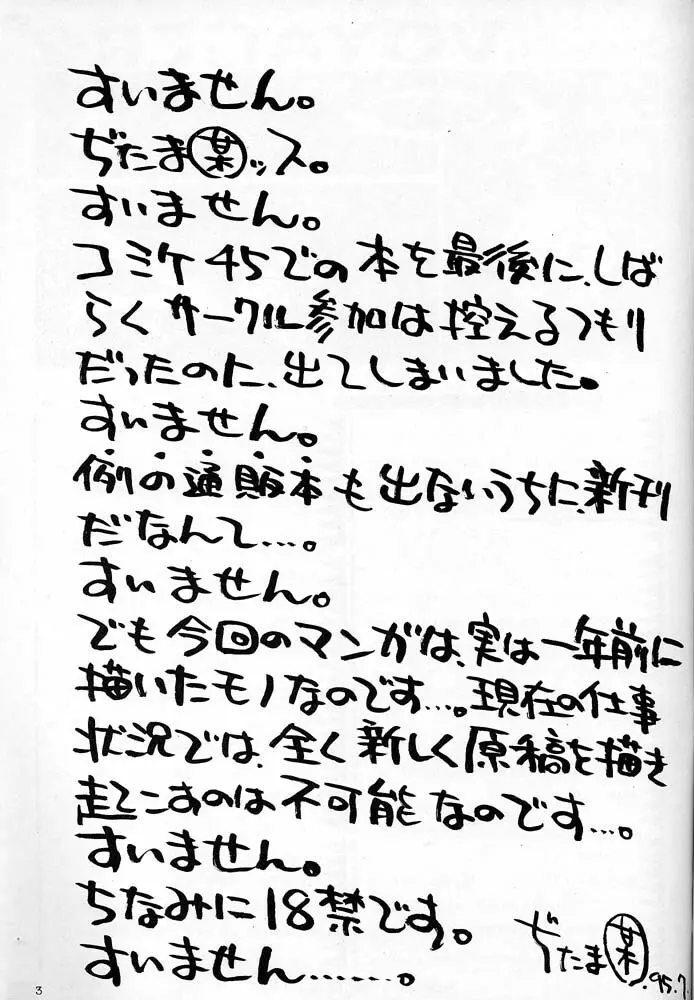 すいません。
ぢたま㋱ッス。
すいません。
コミケ45での本を最後に、しば
らくサークル参加は控えるつもり
だったのに、出てしまいました。
すいません。
例の通販本も出ないうちに、新刊
だなんて…。
すいません。
でも今回のマンガは、実は一年前に
描いたモノなのです…。現在の仕事
状況では、全く新しく原稿を描き
起こすのは不可能なのです…。
すいません。
ちなみに18禁です。
すいません……。
ぢたま某 .95.7.
3